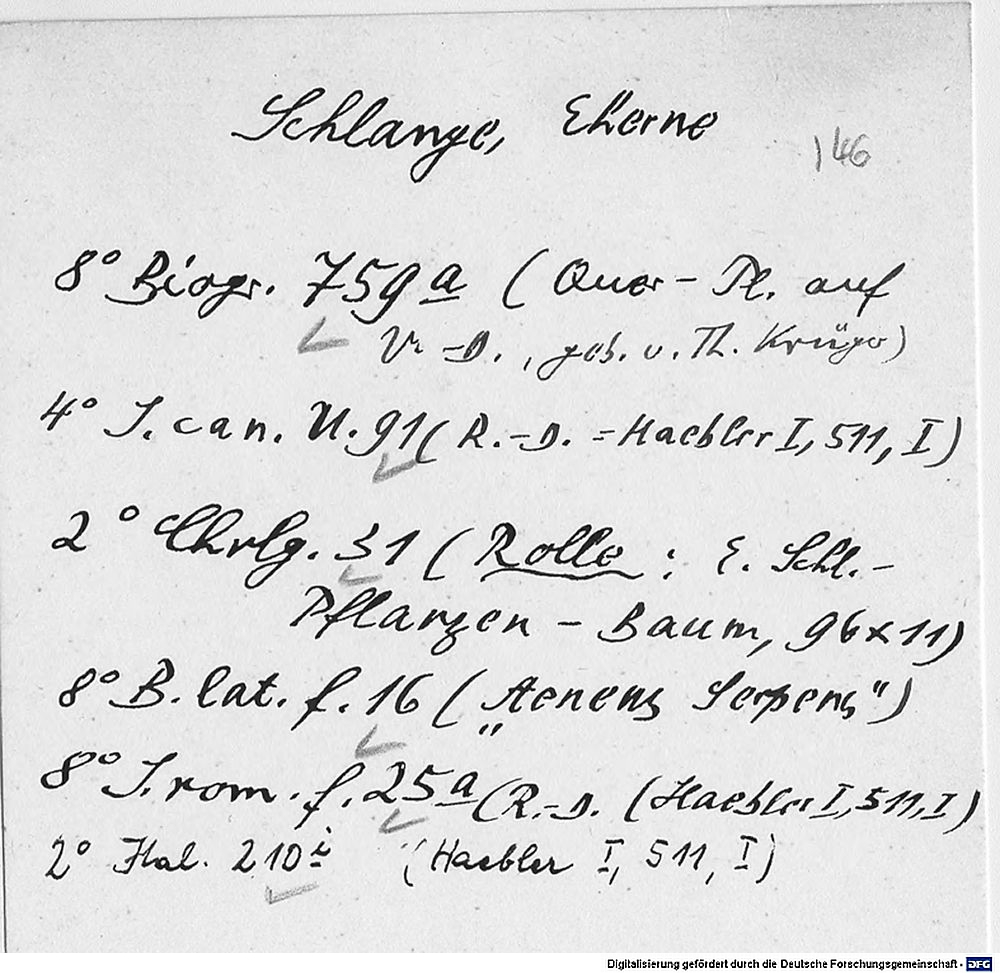 Schlange, Eherne
146
8° Biogr. 759 a (Quer-Pl. auf
V.-D., geb. v. Th. Krüger)
4° J. can. U. 91 (R.-D. = Haebler I, 511, I)
2° Chrlg. 31 (Rolle: E. Schl.-
Pflanzen-Baum, 96 x 11)
8° B. lat. f. 16 („Aeneus Serpens")
8° J. rom. f. 25 a (R.-D. (Haebler I, 511, I)
2° Ital. 210 i (Haebler I, 511, I)
Digitalisierung gefördert durch die Deutsche Forschungsgemeinschaft - DFG